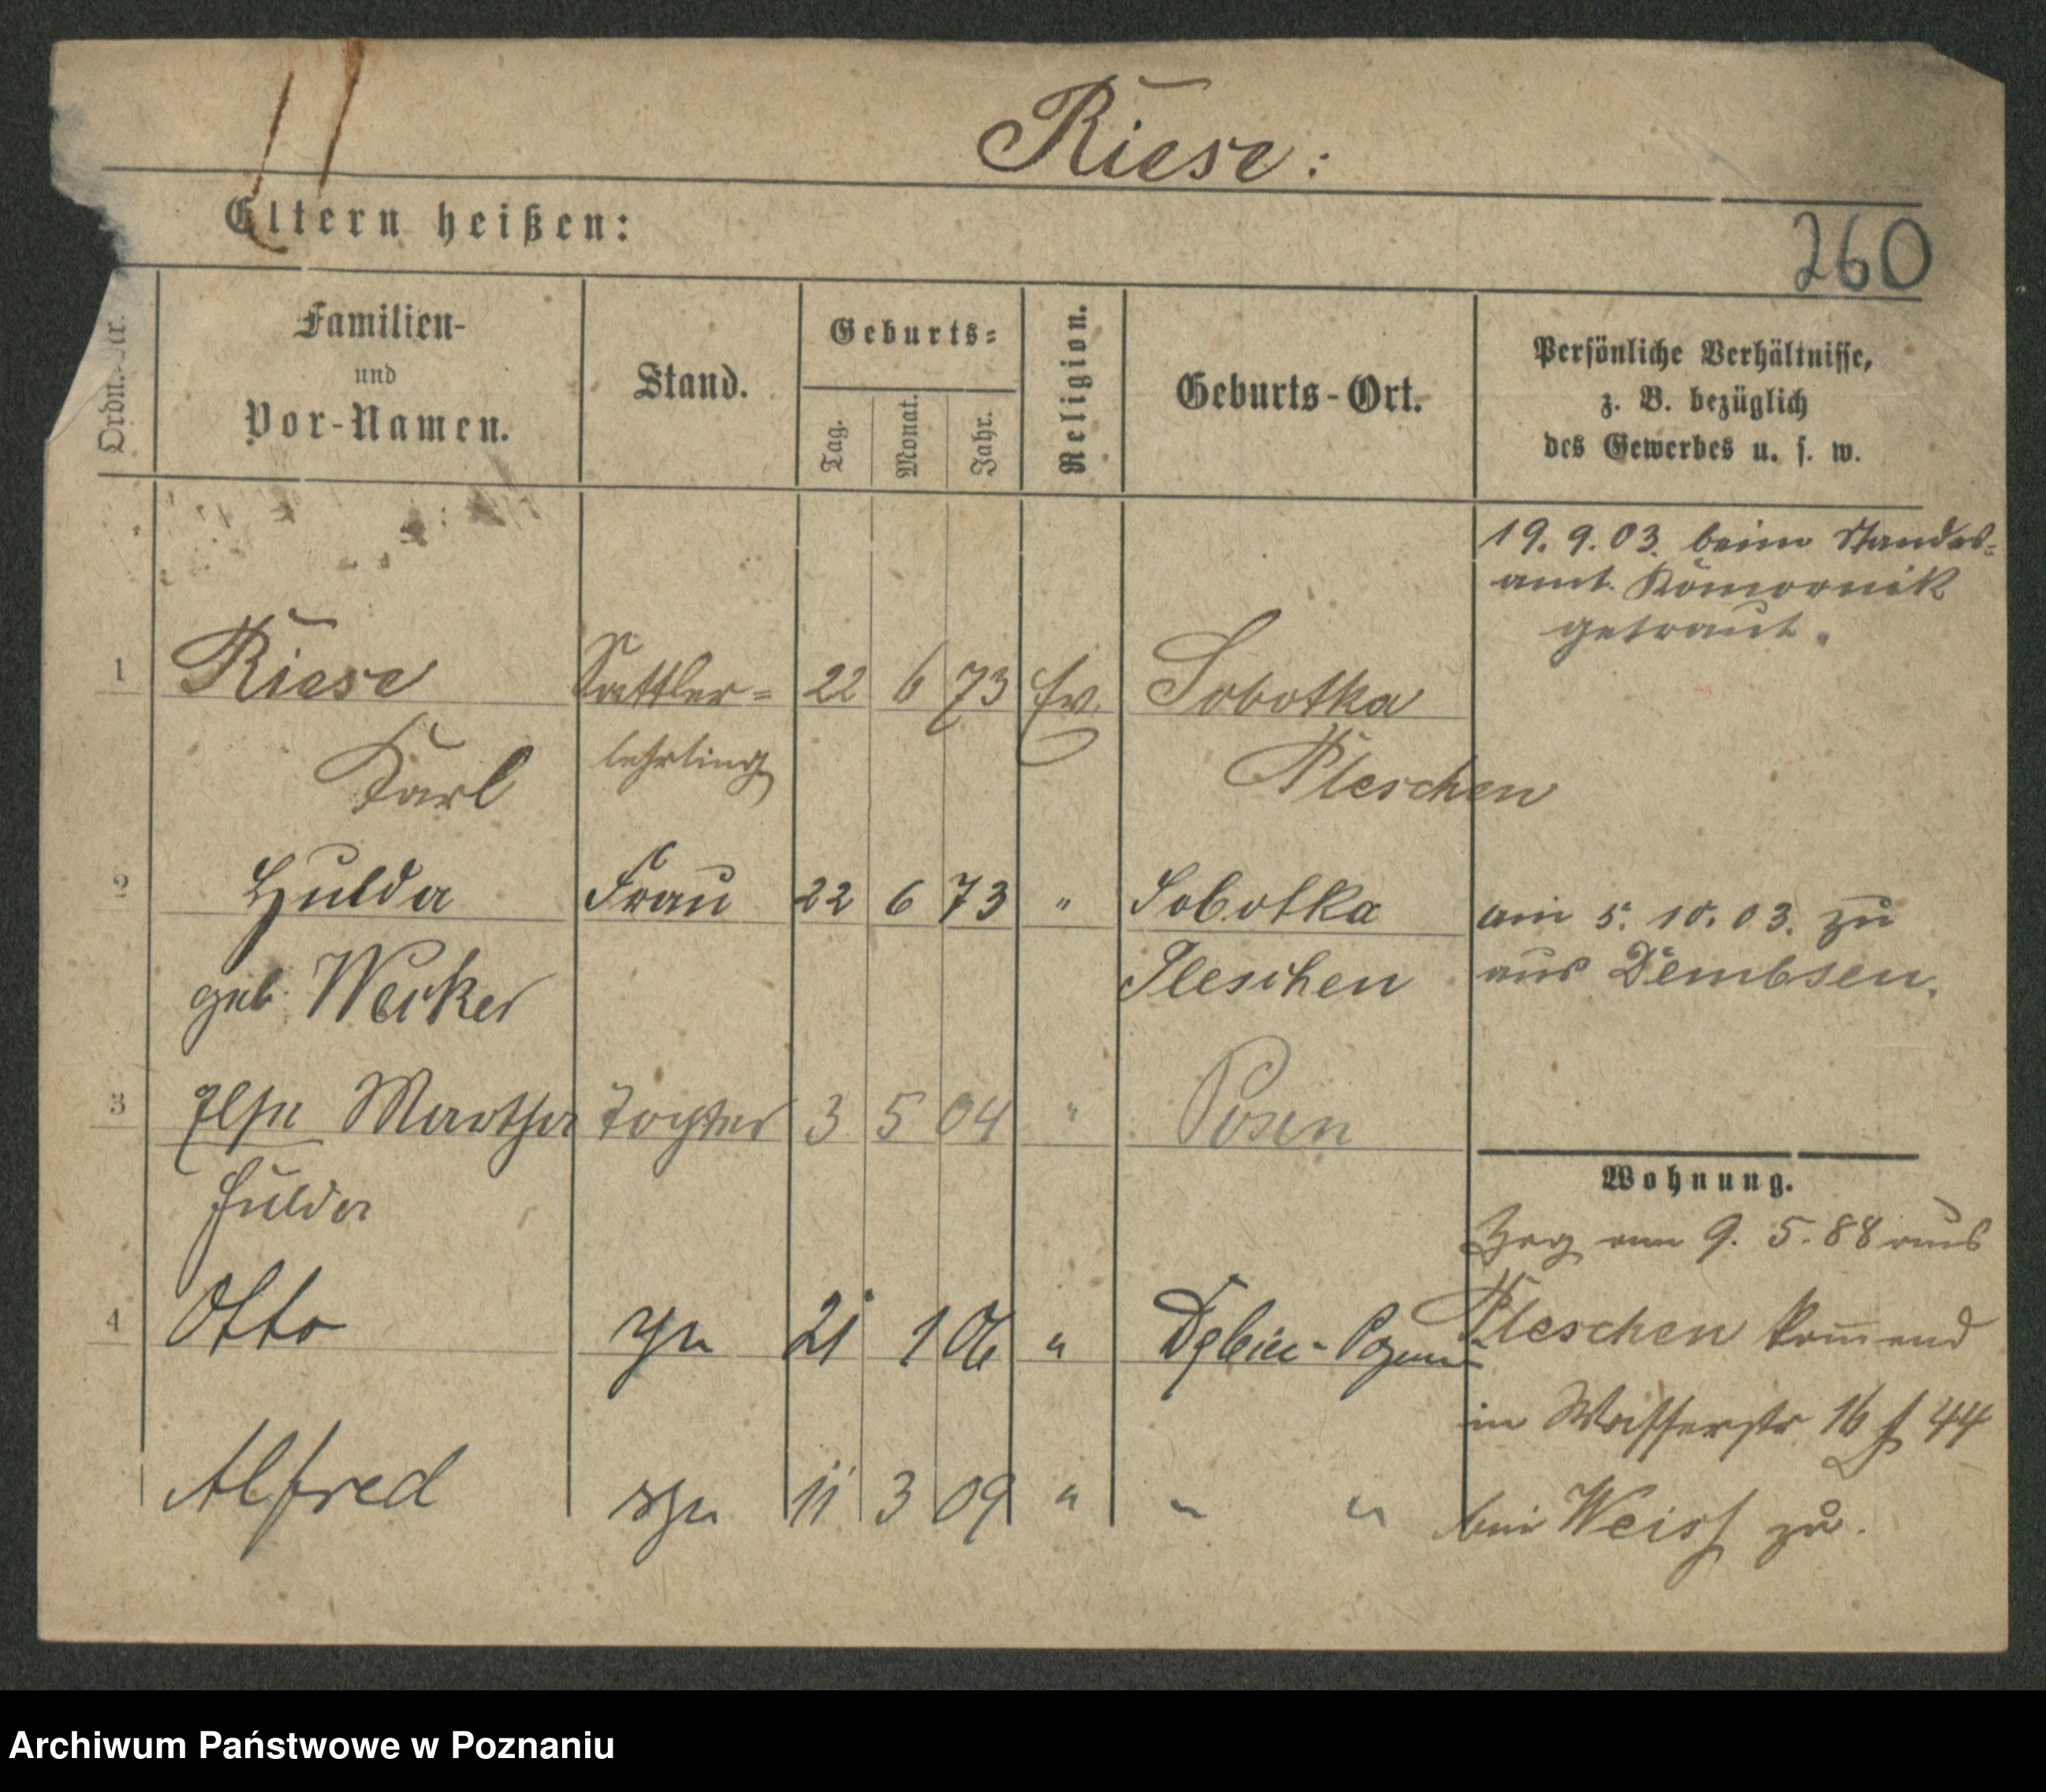 Riese:
Eltern heißen:
260
Ordn.-Nr.
Familien-
und
Vor-Namen.
Stand.
Geburts-
Tag.
Monat.
Jahr.
Religion.
Geburts-Ort.
Persönliche Verhältnisse,
z. B. bezüglich
des Gewerbes u. s. w.
19. 9. 03. beim Standes-
amt Komornik
getraut.
1 Riese Sattler- 22 6 73 Ev. Sobotka
Karl lehrling Pleschen
2 Hulda Frau 22 6 73 " Sobotka am 5. 10. 03. zu
geb. Weiker Pleschen aus Dembsen.
3 Else Martha Tochter 3 5 04 " Posen
Hulda
Wohnung.
Zog am 9. 5. 88 aus
4 Otto 21 1 06 " Dębiec - Pleschen kommend
in Wasserstr 16 44
Alfred 11 3 09 " " "
bei Weiss zu.
Archiwum Państwowe w Poznaniu